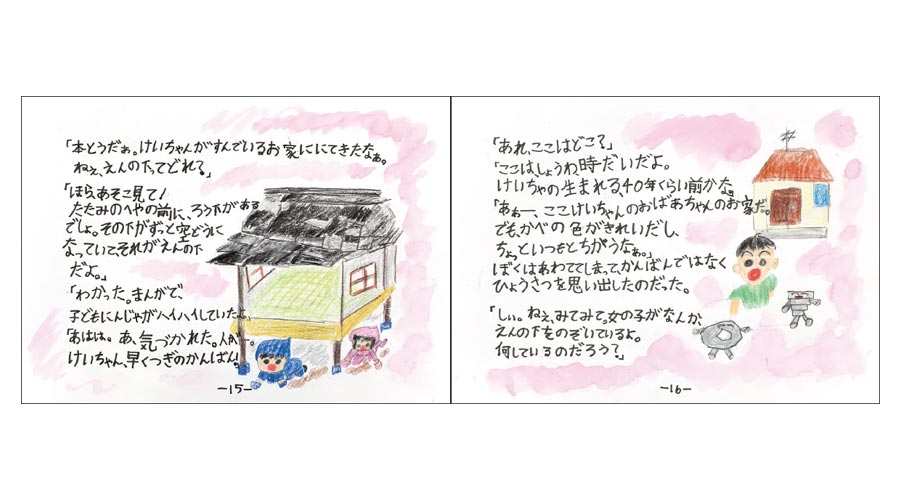 「本とうだぁ。けいちゃんがすんでいるお家ににてきたなぁ。
ねぇ、えんの下ってどれ?」
「ほら、あそこ見て!
たたみのへやの前に、ろう下がある
でしょ。その下がずっと空どうに
なっていてそれがえんの下
だよ。」
「わかった。まんがで、
子どもにんじゃがハイハイしていたよ」
「あはは。あ、気づかれた。
けいちゃん、早くつぎのかんばん!
ー15ー
「あれ、ここはどこ?」
「ここはしょうわ時だいだよ。
けいちゃの生まれる、40年くらい前かな。
「あぁー、ここけいちゃんのおばあちゃんのお家だ。
でも、かべの色がきれいだし、
ちょっといつもとちがうなぁ。」
ぼくはあわててしまって、かんばんではなく
ひょうさつを思い出したのだった。
「しぃ。ねぇ、みてみて、女の子がなんか、
えんの下をのぞいているよ。
何しているのだろう?」
ー16ー